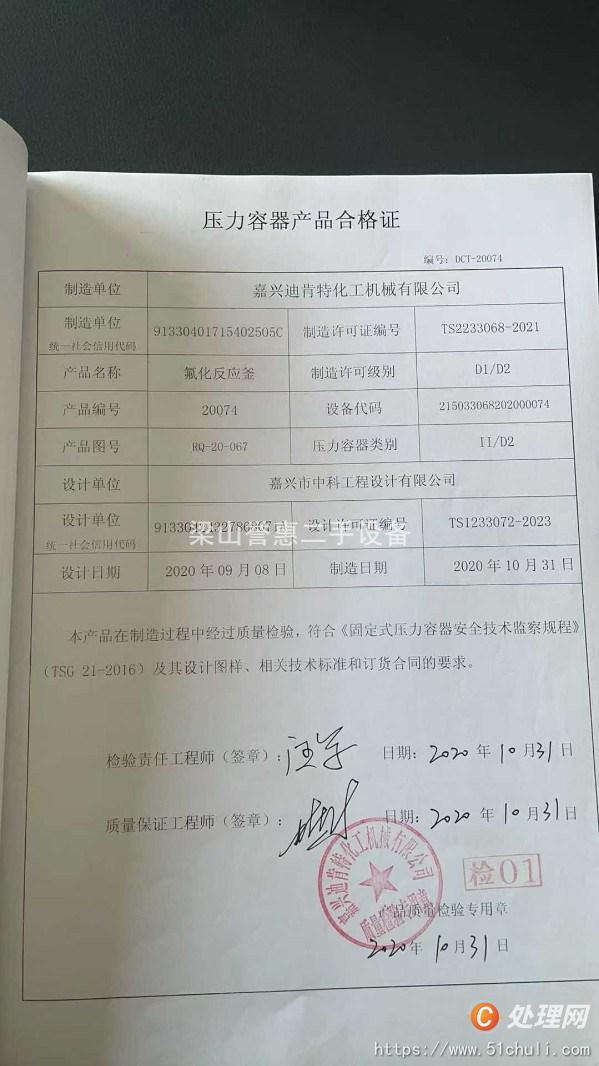 压力容器产品合格证
编号：DCT-20074
制造单位 嘉兴迪肯特化工机械有限公司
制造单位 统一社会信用代码 91330401715402505C 制造许可证编号 TS2233068-2021
产品名称 氟化反应釜 制造许可级别 D1/D2
产品编号 20074 设备代码 215033068202000074
产品图号 RQ-20-067 压力容器类别 II/D2
设计单位 嘉兴市中科工程设计有限公司
设计单位 统一社会信用代码 设计许可证编号 TS1233072-2023
梁山誉惠二手设备
设计日期 2020年09月08日 制造日期 2020年10月31日
本产品在制造过程中经过质量检验，符合《固定式压力容器安全技术监察规程》
（TSG 21-2016）及其设计图样、相关技术标准和订货合同的要求。
检验责任工程师（签章）： 日期：2020年10月31日
质量保证工程师（签章）： 日期：2020年10月31日
嘉兴迪肯特化工机械有限公司
质量检验专用章
检01
产品质量检验专用章
2020年10月31日
C 处理网
https://www.51chuli.com